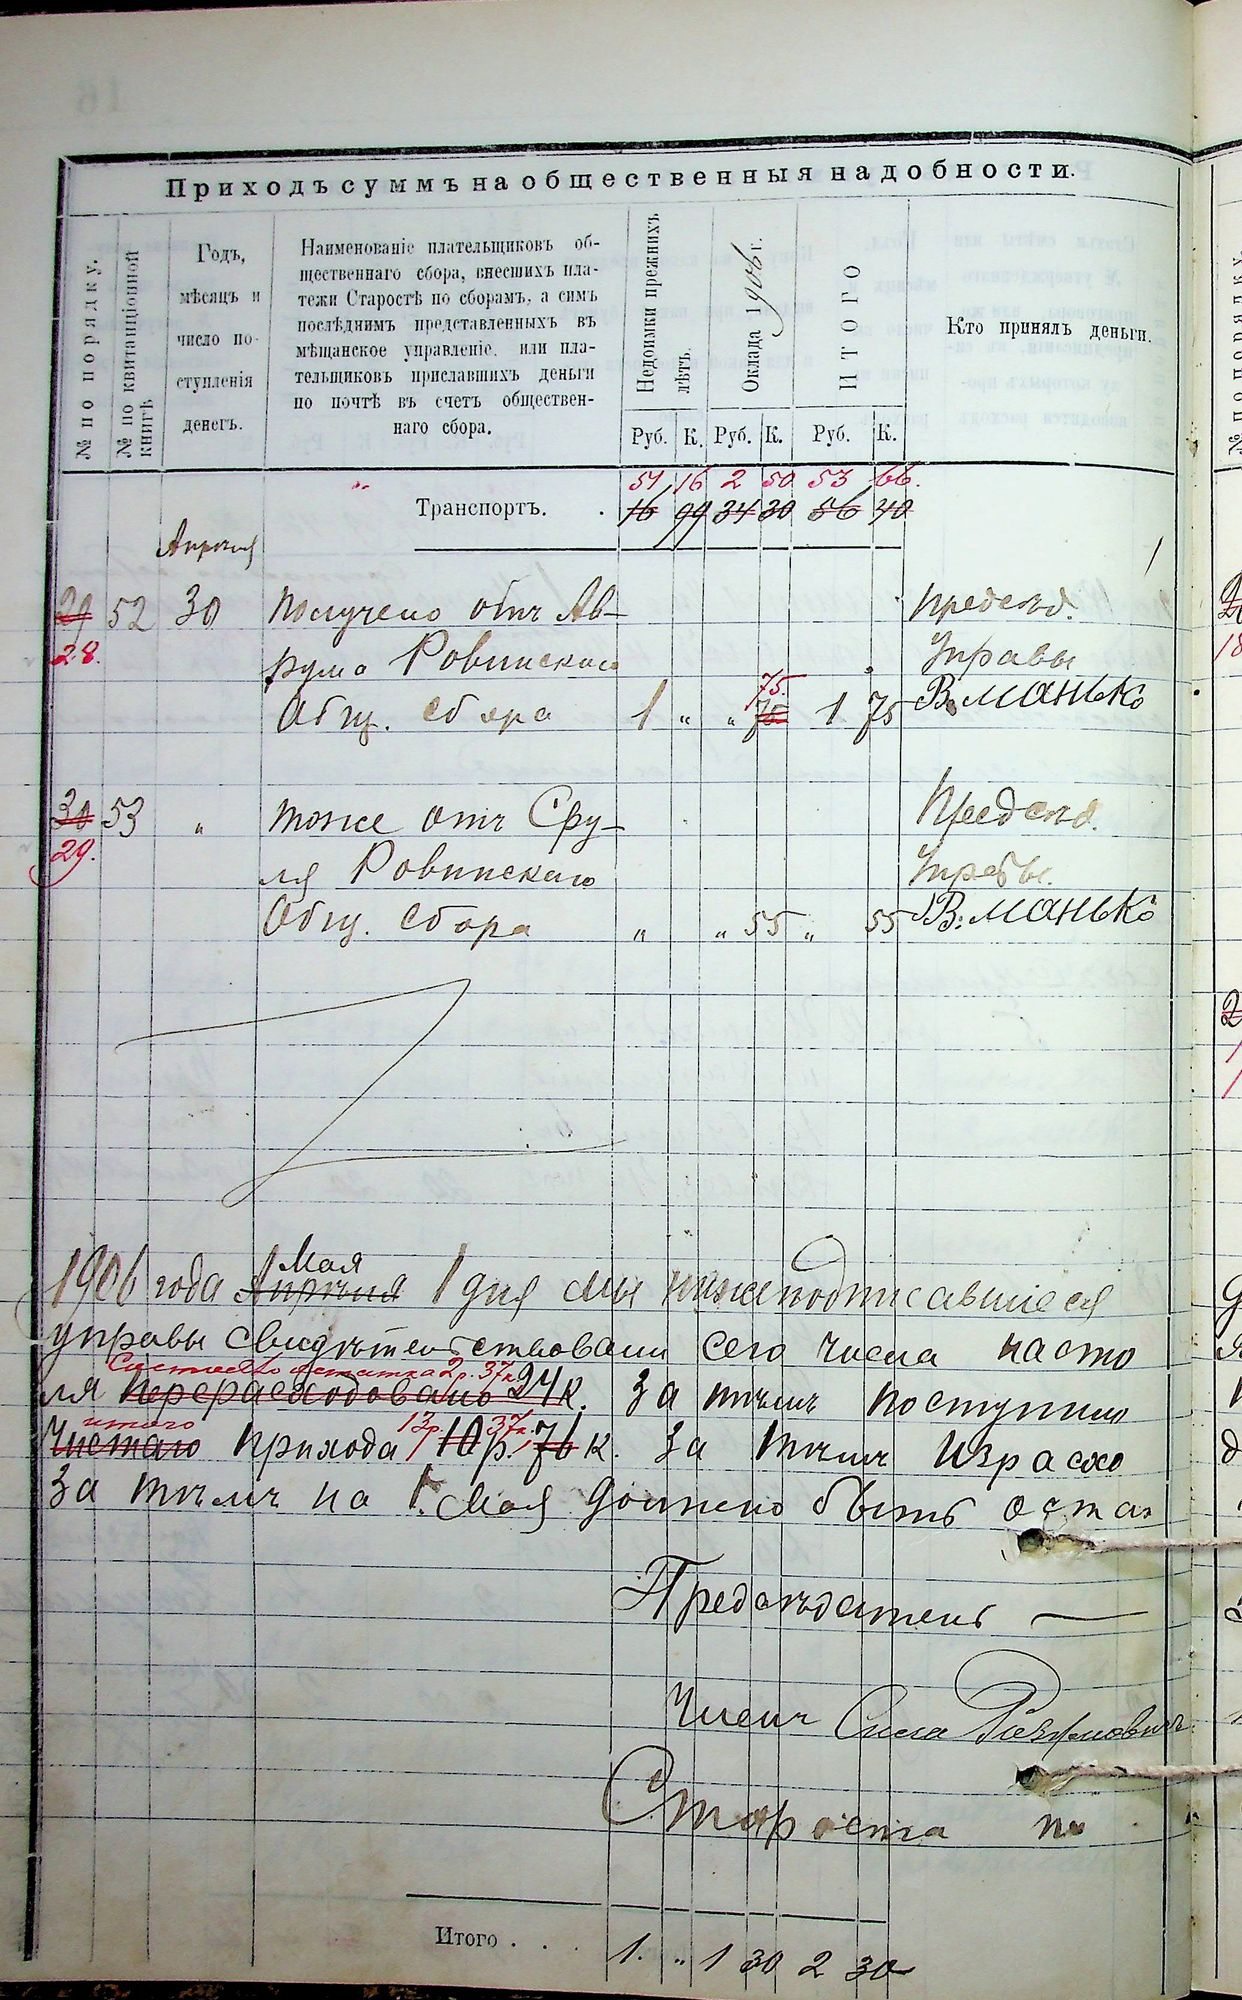 Приходъ суммъ на общественныя надобности.
№ по порядку.
№ по квитанціонной книгѣ
Годъ,
мѣсяцъ и
число по-
ступленія
денегъ.
Наименованіе плательщиковъ об-
щественнаго сбора, внесшихъ пла-
тежи Старостѣ по сборамъ, а симъ
послѣднимъ представленныхъ въ
мѣщанское управленіе, или пла-
тельщиковъ приславшихъ деньги
по почтѣ въ счетъ обществен-
наго сбора.
Недоимки прежнихъ лѣтъ.
Оклада 1906 г.
Итого
Кто принялъ деньги.
Руб. К. Руб. К. Руб. К.
51 16 2 50 53 66.
Транспортъ. 16 99 34 30 56 40
Апрѣля
29 52 30 Получено отъ Ав- Предсѣд.
28. рума Ровинскаго Управы
75.
Общ. сбора 1 „ „ 1 75 В. Манько
30 53 „ тоже отъ Сру- Предсѣд.
29. ля Ровинскаго Управы.
Общ. сбора „ „ 55 „ 55 В. Манько
Мая
1906 года Апрѣля 1 дня мы нижеподписавшіеся
управы свидѣтельствовали сего числа насто
остатка 2 р. 37 к.
ля перерасходовано 24 к. За тѣмъ поступило
итого 13 р. 37 к.
Чистаго прихода 10 р. 76 к. За тѣмъ израсхо
За тѣмъ на 1. Мая должно быть остат
Предсѣдатель
Членъ
Староста по
Итого . . . 1. „ 1 30 2 30